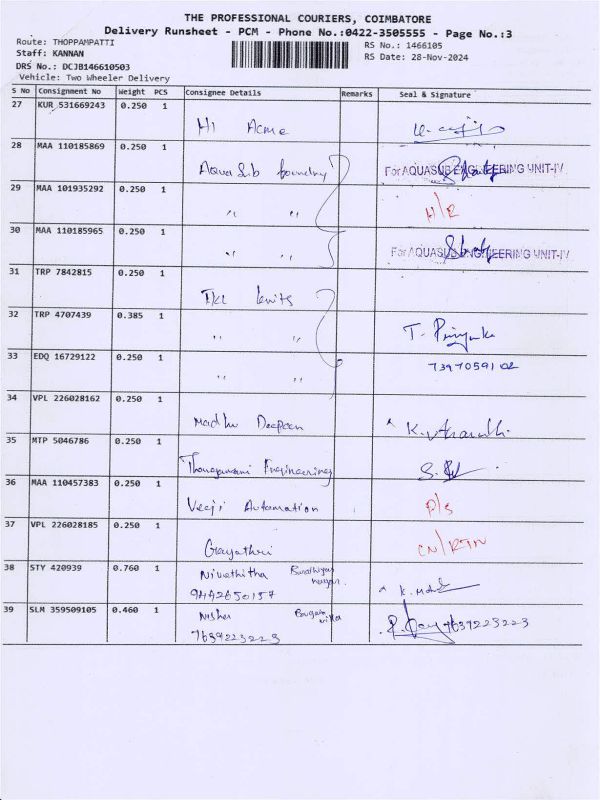 THE PROFESSIONAL COURIERS, COIMBATORE
Delivery Runsheet - PCM - Phone No.:0422-3505555 - Page No.:3
Route: THOPPAMPATTI RS No.: 1466105
Staff: KANNAN RS Date: 28-Nov-2024
DRS No.: DCJB146610503
Vehicle: Two Wheeler Delivery
S No Consignment No Weight PCS Consignee Details Remarks Seal & Signature
27 KUR 531669243 0.250 1
Hi Acme
28 MAA 110185869 0.250 1
AquaSub foundry For AQUASUB ENGINEERING UNIT-IV
29 MAA 101935292 0.250 1
" " H/R
30 MAA 110185965 0.250 1
" " For AQUASUB ENGINEERING UNIT-IV
31 TRP 7842815 0.250 1
knits
32 TRP 4707439 0.385 1
" " T. Priyanka
33 EDQ 16729122 0.250 1 7397059102
" "
34 VPL 226028162 0.250 1
Madhu Deepan K.
35 MTP 5046786 0.250 1
Thangamani Engineering
36 MAA 110457383 0.250 1
Veeji Automation D/S
37 VPL 226028185 0.250 1
Gayathri CN/RTN
38 STY 420939 0.760 1 Nivethitha
9442650157 K.
39 SLM 359509105 0.460 1 Nisha
7639223223 7639223223